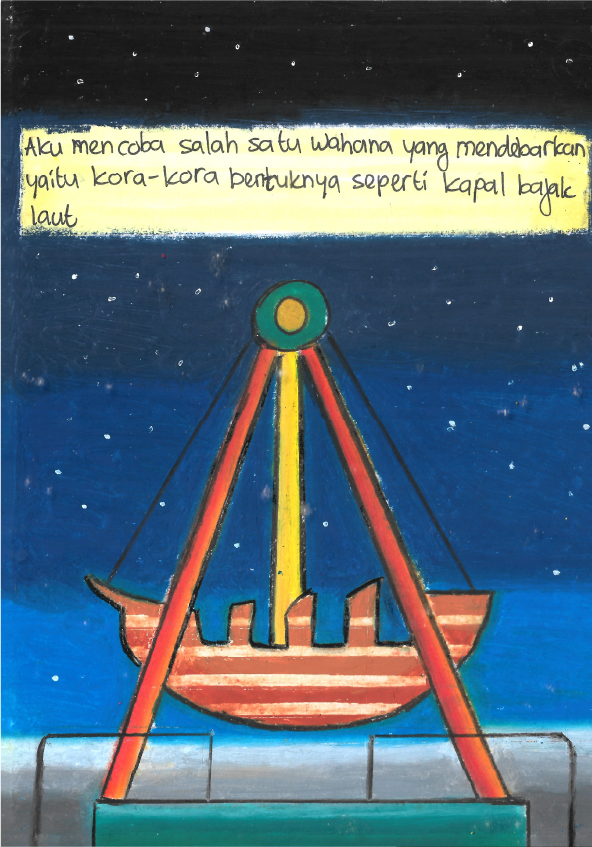 Aku mencoba salah satu wahana yang mendebarkan
yaitu kora-kora bentuknya seperti kapal bajak
laut